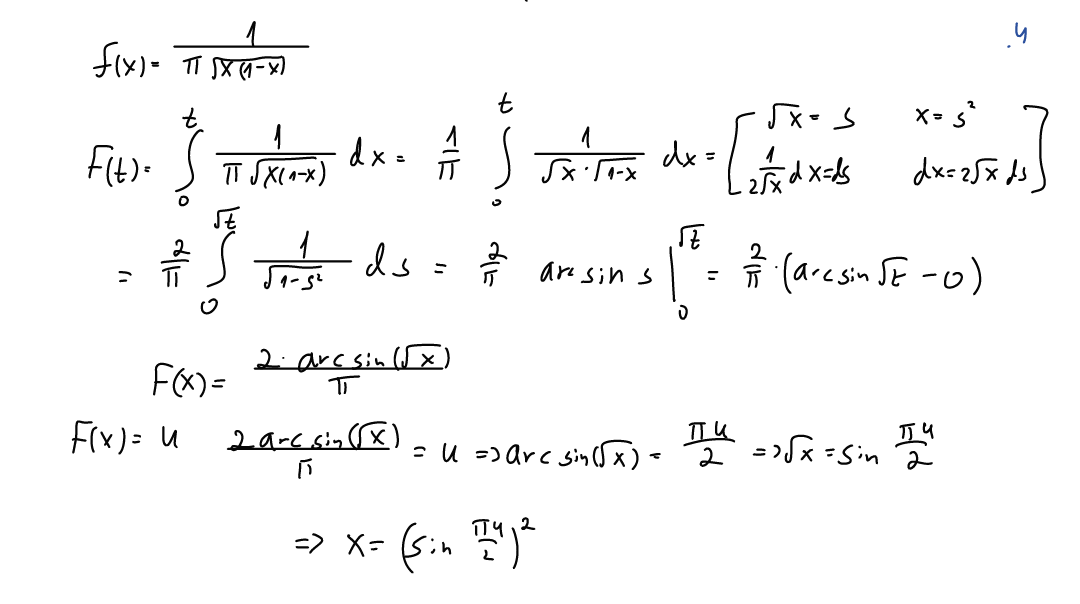 .4
f(x) = 1 / (π √(x(1-x)))
F(t) = ∫₀ᵗ 1 / (π √(x(1-x))) dx = 1/π ∫₀ᵗ 1 / (√x · √(1-x)) dx = [ √x = s   x = s²   1/(2√x) dx = ds   dx = 2√x ds ]
= 2/π ∫₀^√t 1 / √(1-s²) ds = 2/π arcsin s |₀^√t = 2/π · (arcsin √t - 0)
F(x) = 2 · arcsin(√x) / π
F(x) = u   2 arcsin(√x) / π = u => arcsin(√x) = πu/2 => √x = sin πu/2
=> x = (sin πu/2)²